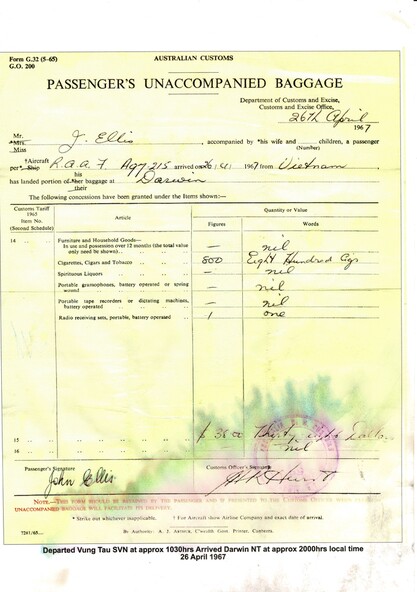 Form G.32 (5-65)
G.O. 200
AUSTRALIAN CUSTOMS
PASSENGER'S UNACCOMPANIED BAGGAGE
Department of Customs and Excise,
Customs and Excise Office,
26th April
1967
Mr.
*Mrs. J. Ellis, accompanied by *his wife and children, a passenger
Miss
(Number)
†Aircraft
per* Ship R.A.A.F. A97 215 arrived on 26.4.1967 from Vietnam
his
has landed portion of *her baggage at Darwin
their
The following concessions have been granted under the Items shown:—
Customs Tariff 1965 Item No. (Second Schedule)
Article
Quantity or Value
Figures
Words
14
Furniture and Household Goods—
In use and possession over 12 months (the total value only need be shown) — nil
Cigarettes, Cigars and Tobacco 800 Eight Hundred Cgs
Spirituous Liquors — nil
Portable gramophones, battery operated or spring wound — nil
Portable tape recorders or dictating machines, battery operated — nil
Radio receiving sets, portable, battery operated 1 one
15 $ 38.00 Thirty eight Dollars
16 nil
Passenger's Signature
Customs Officer's Signature
John Ellis
NOTE—THIS FORM SHOULD BE RETAINED BY THE PASSENGER AND IF PRESENTED TO THE CUSTOMS
UNACCOMPANIED BAGGAGE WILL FACILITATE ITS DELIVERY.
* Strike out whichever inapplicable. † For Aircraft show Airline Company and exact date of arrival.
7241/65.—
By Authority: A. J. Arthur, C'wealth Govt. Printer, Canberra.
Departed Vung Tau SVN at approx 1030hrs Arrived Darwin NT at approx 2000hrs local time
26 April 1967